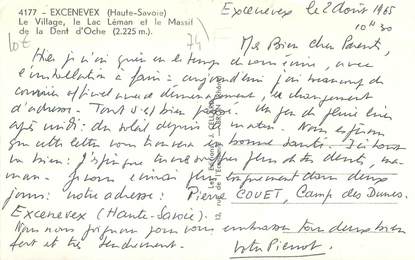 4177 - EXCENEVEX (Haute-Savoie)
Le Village, le Lac Léman et le Massif
de la Dent d'Oche (2.225 m.)
74)
Excenevex le 2 Août 1965
10 H 30
Mes Bien chers Parents,
Hier, je n'ai guère eu le temps d'écrire, avec
l'installation à faire : aujourd'hui j'ai beaucoup de
courrier officiel avec le déménagement, le changement
d'adresse. Tout s'est bien passé. Un peu de pluie hier
après midi : du soleil depuis ce matin. Nous espérons
que cette lettre vous trouvera en bonne santé. Ici tous
vont bien : J'espère que tu ne souffres plus des dents, ma-
man. Je vous écrirai plus longuement dans deux
jours : notre adresse : Pierre COUET, Camp des Dunes.
Excenevex (Haute-Savoie).
Nous nous joignons pour vous embrasser tous deux bien
fort et très tendrement. Votre Pierrot.